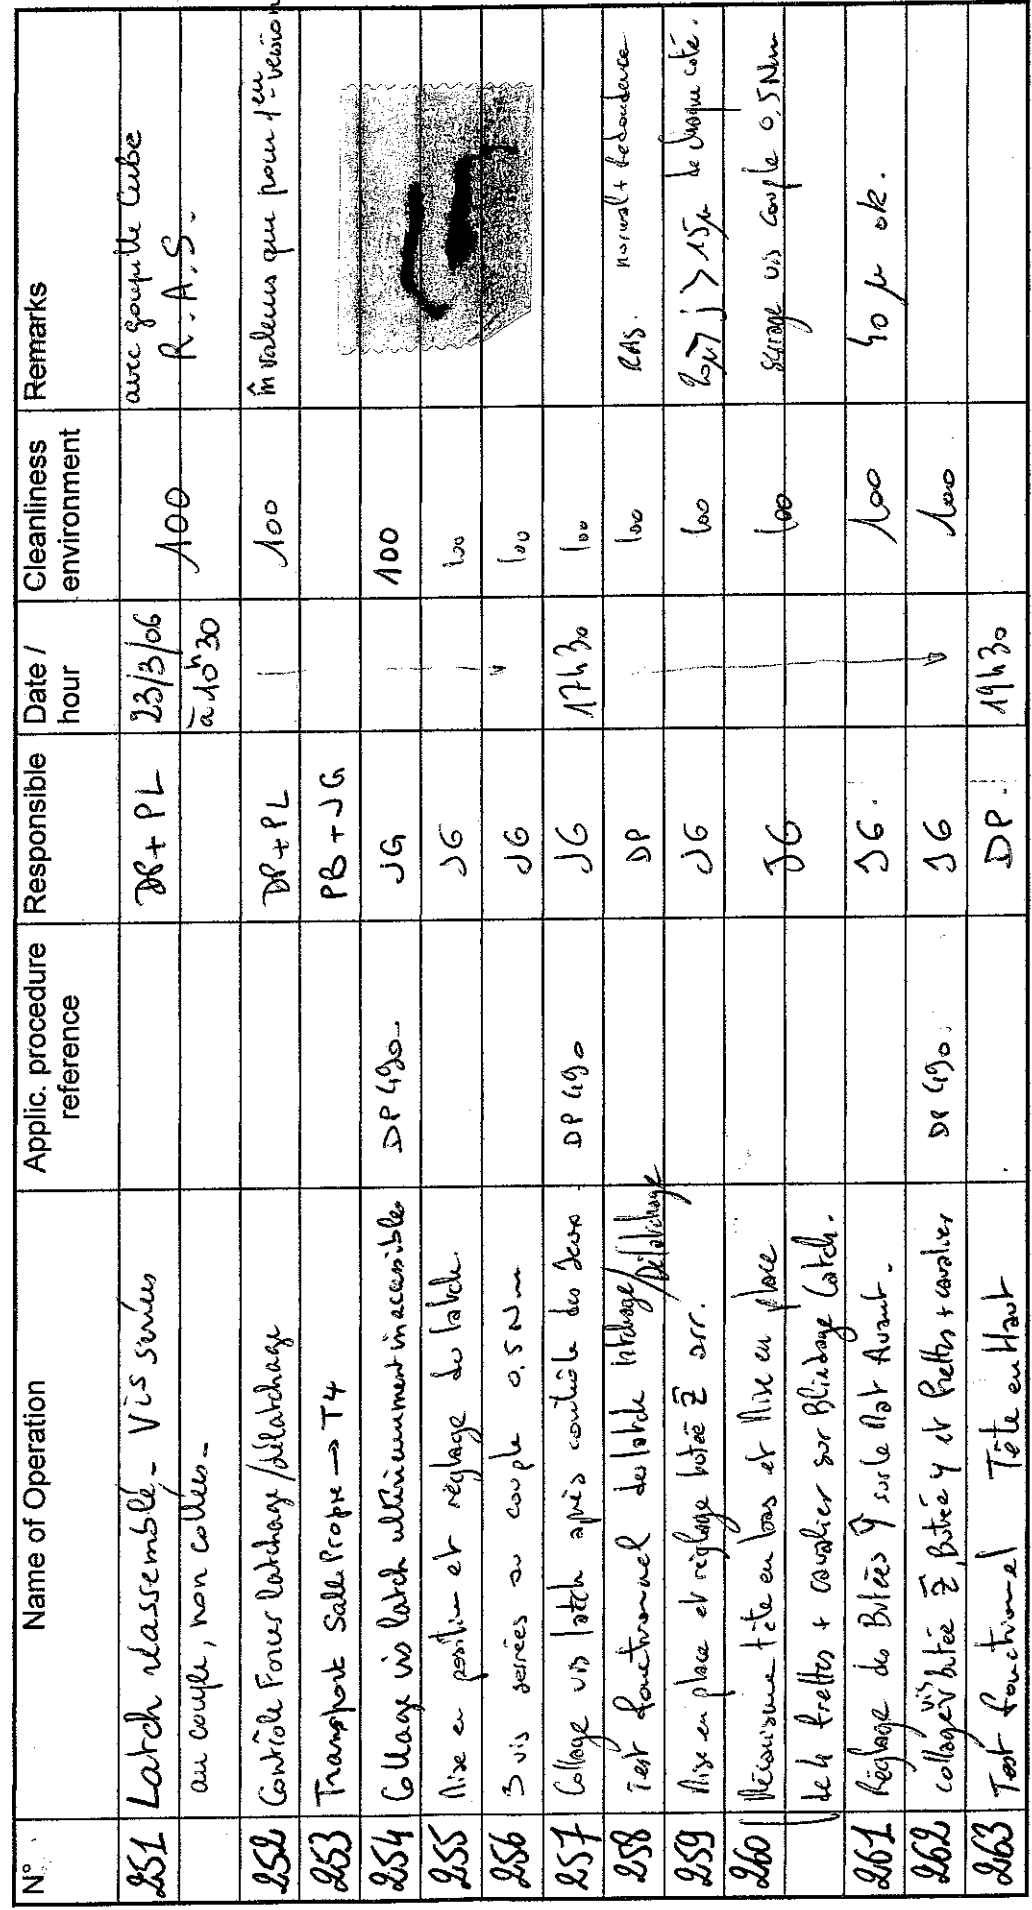 N° Name of Operation Applic. procedure reference Responsible Date / hour Cleanliness environment Remarks
251 Latch réassemblé - Vis serrées DP + PL 23/3/06 100 avec goupille Cube
au couple, non collées - à 10h30 R.A.S.
252 Contrôle Forces latchage/délatchage DP + PL 100 valeurs que pour 1ère version
253 Transport Salle Propre → T4 PB + JG
254 Collage vis latch ultérieurement inaccessibles DP 490 - JG 100
255 Mise en position et réglage du latch JG 100
256 3 vis serrées au couple 0.5 Nm JG 100
257 Collage vis latch après contrôle des jeux DP 490 JG 17h30 100
258 Test fonctionnel des latch latchage/Délatchage DP 100 RAS. normal + Redondance
259 Mise en place et réglage butée Z arr. JG 100 20μ > j > 15μ de chaque coté.
260 Mécanisme tête en bas et Mise en place JG 100 serrage vis couple 0,5 Nm
de 4 frettes + cavalier sur Blindage Catch.
261 Réglage des Butées Y sur le Mat Avant - JG. 100 40 μ ok.
262 collage vis butée Z, Butée Y et Frettes + cavalier DP 490. JG 100
263 Test fonctionnel Tête en Haut DP. 19h30